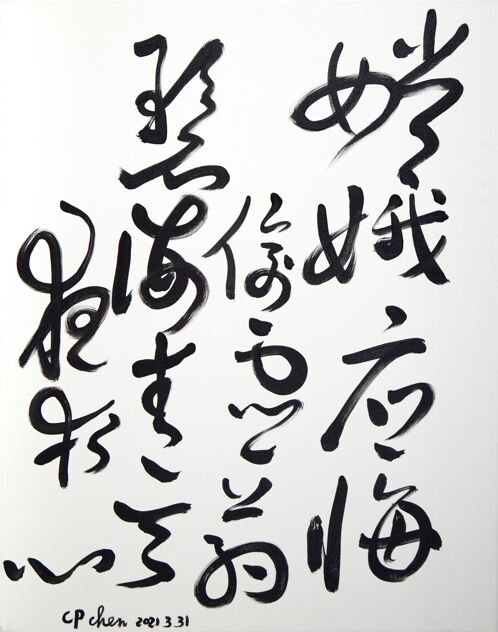 嫦娥应悔
偷灵药
碧海青天
夜夜心
CP chen 2021 3.31